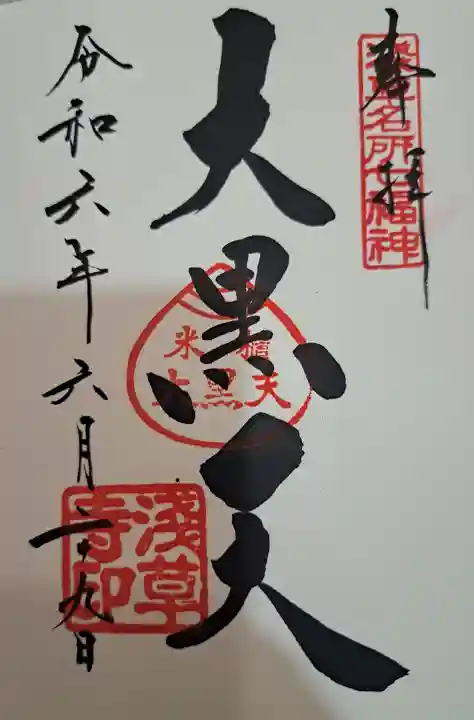 奉拝
浅草名所七福神
大黒天
米福
大黒天
浅草
寺印
令和六年六月二十九日